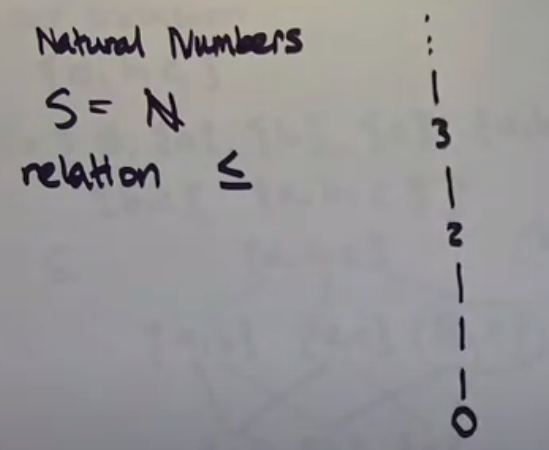 Natural Numbers
S = ℕ
relation ≤
⋮
|
3
|
2
|
1
|
0